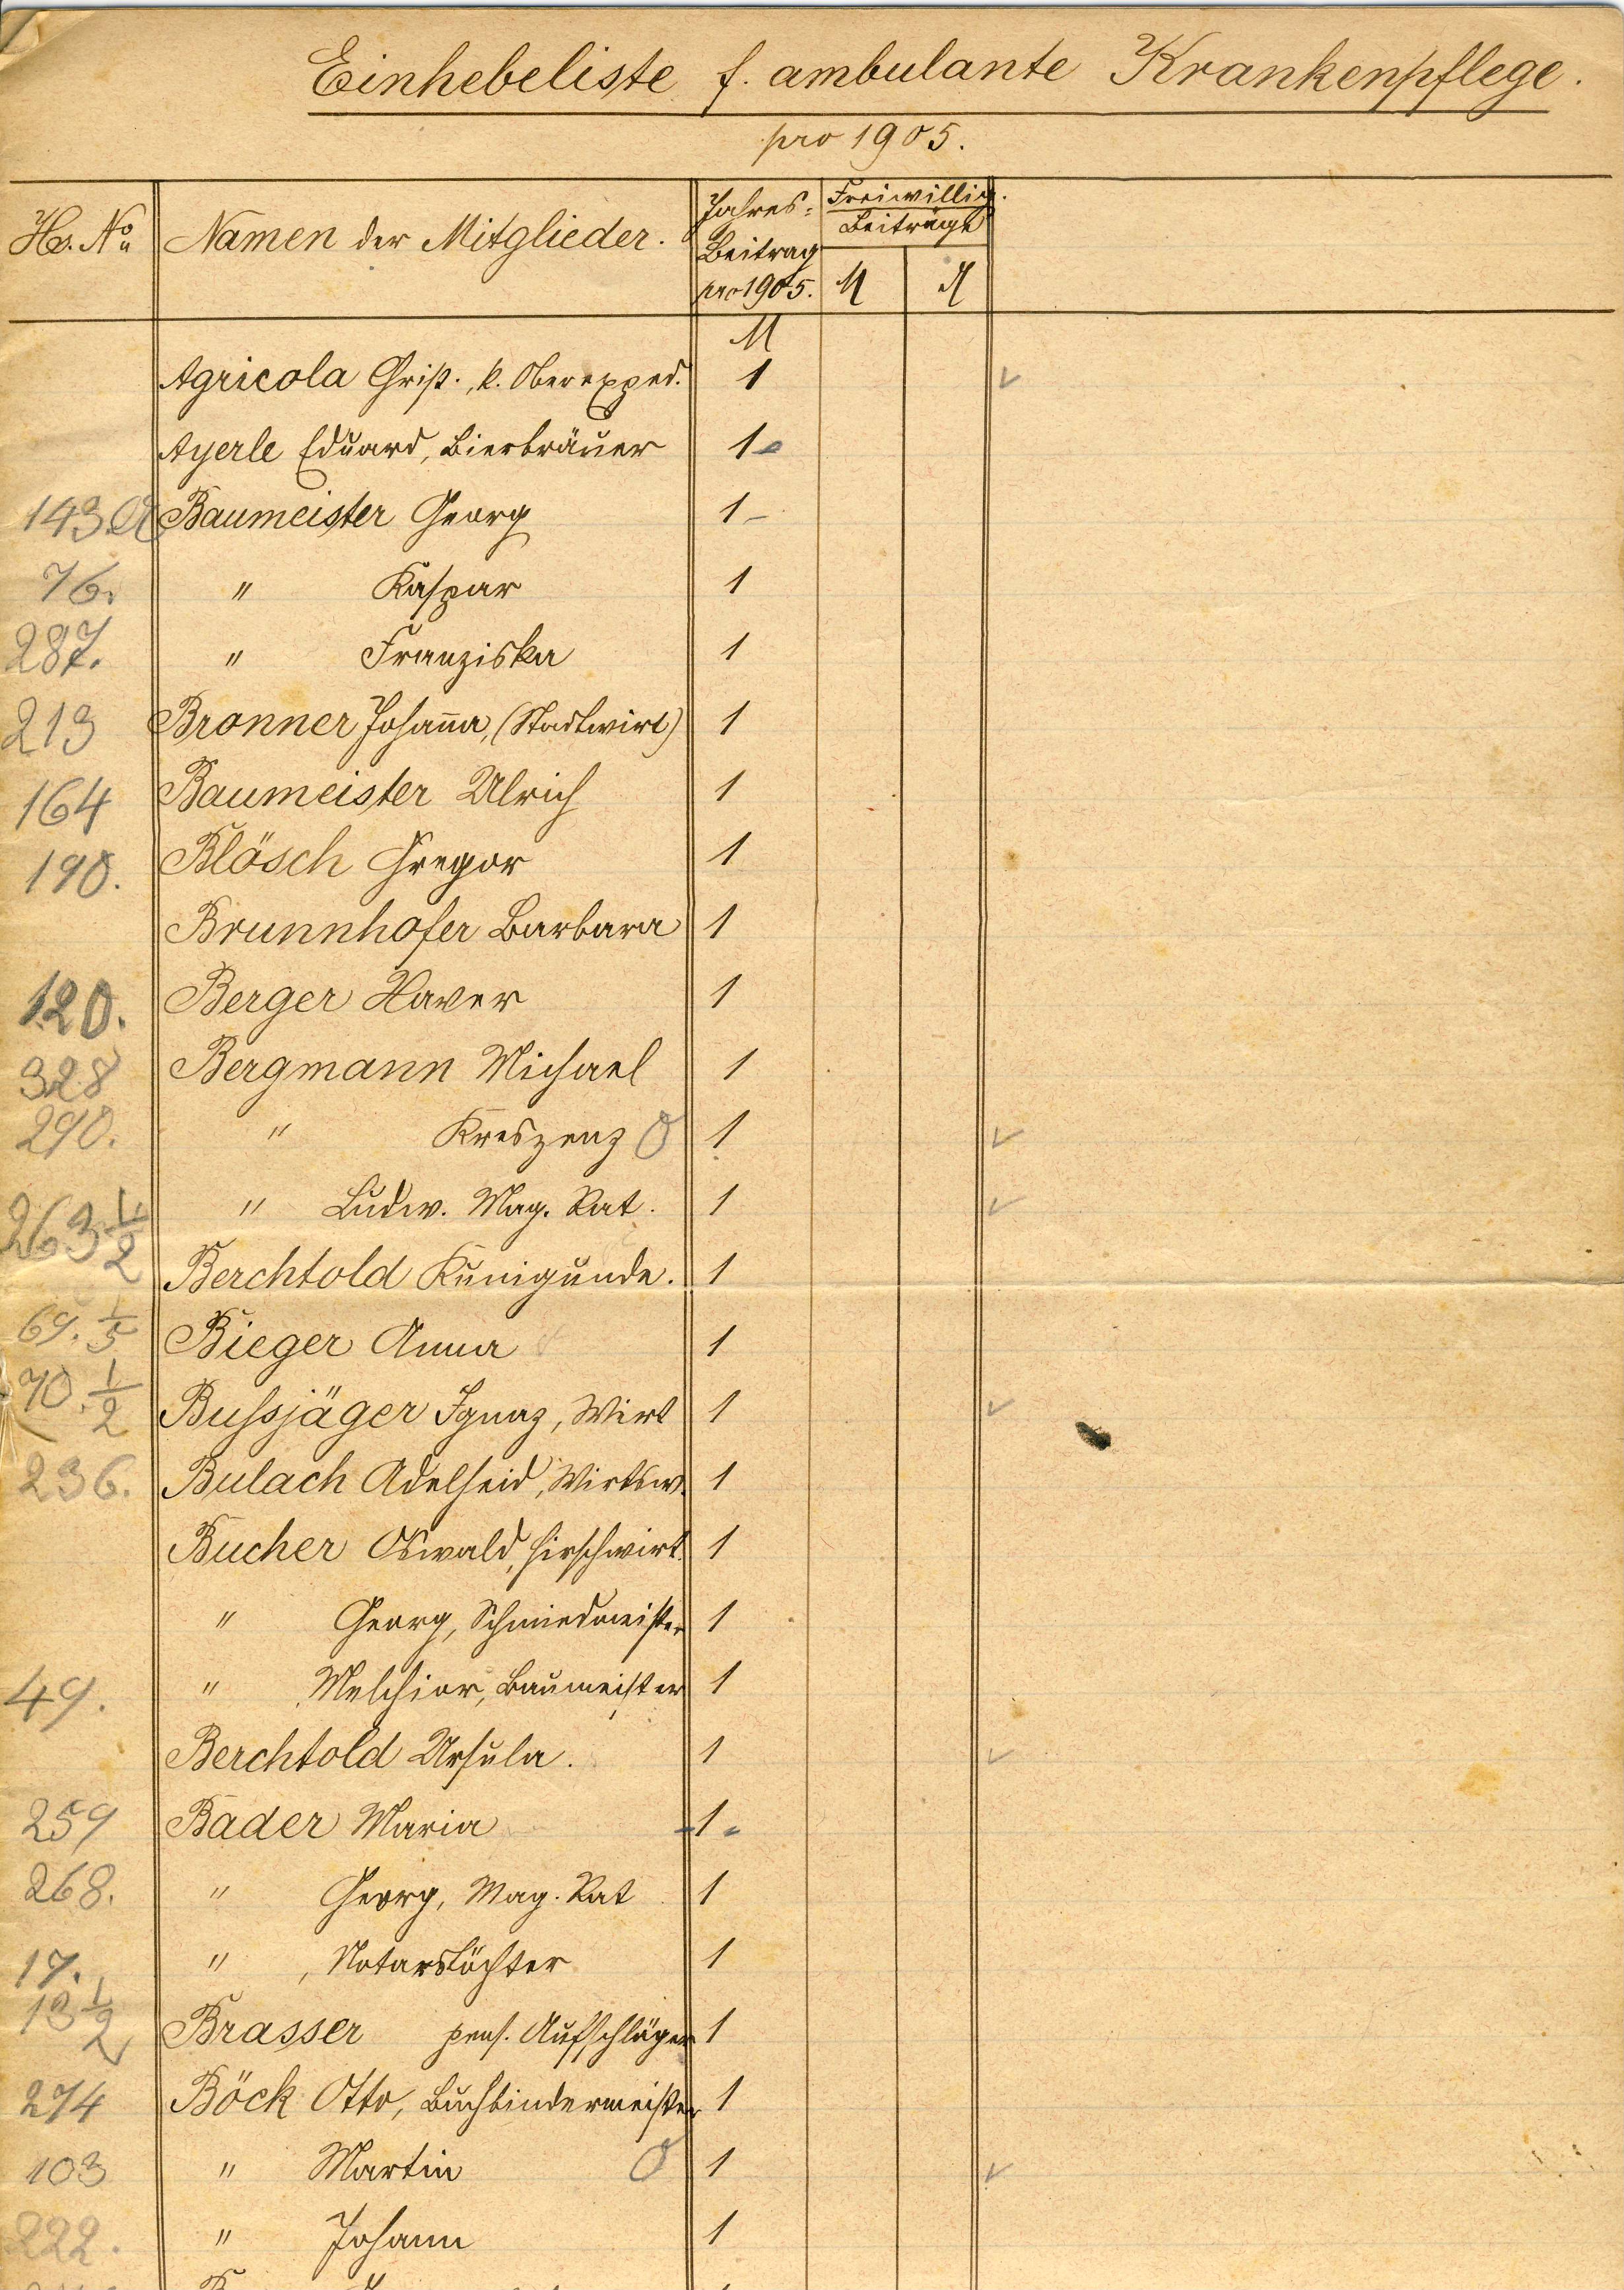 Einhebeliste f. ambulante Krankenpflege.
pro 1905.
Hs. No Namen der Mitglieder. Jahres- Beitrag pro 1905. Freiwillig. Beiträge M ₰
M
Agricola Christ., k. Oberexped. 1 ✓
Ayerle Eduard, Bierbräuer 1
143. Baumeister Georg 1 –
76. " Kaspar 1
287. " Franziska 1
213 Bronner Johanna, (Stadtwirt) 1
164 Baumeister Ulrich 1
190. Blösch Gregor 1
Brunnhofer Barbara 1
120. Berger Xaver 1
328 Bergmann Michael 1
290. " Kreszenz 0 1 ✓
263 1/2 " Ludw. Mag. Rat. 1 ✓
Berchtold Kunigunde. 1
69. 1/5 Bieger Anna 1
70. 1/2 Bussjäger Ignaz, Wirt 1 ✓
236. Bulach Adelheid, Wirtsw. 1
Bucher Oswald, Hirschwirt. 1
" Georg, Schmiedmeister 1
49. " Melchior, Baumeister 1
Berchtold Ursula. 1 ✓
259 Bader Maria 1
268. " Georg, Mag. Rat 1
17. " , Notarstöchter 1
13 1/2 Brasser pens. Aufschläger 1
274 Böck Otto, Buchbindermeister 1
103 " Martin 0 1 ✓
222. " Johann 1